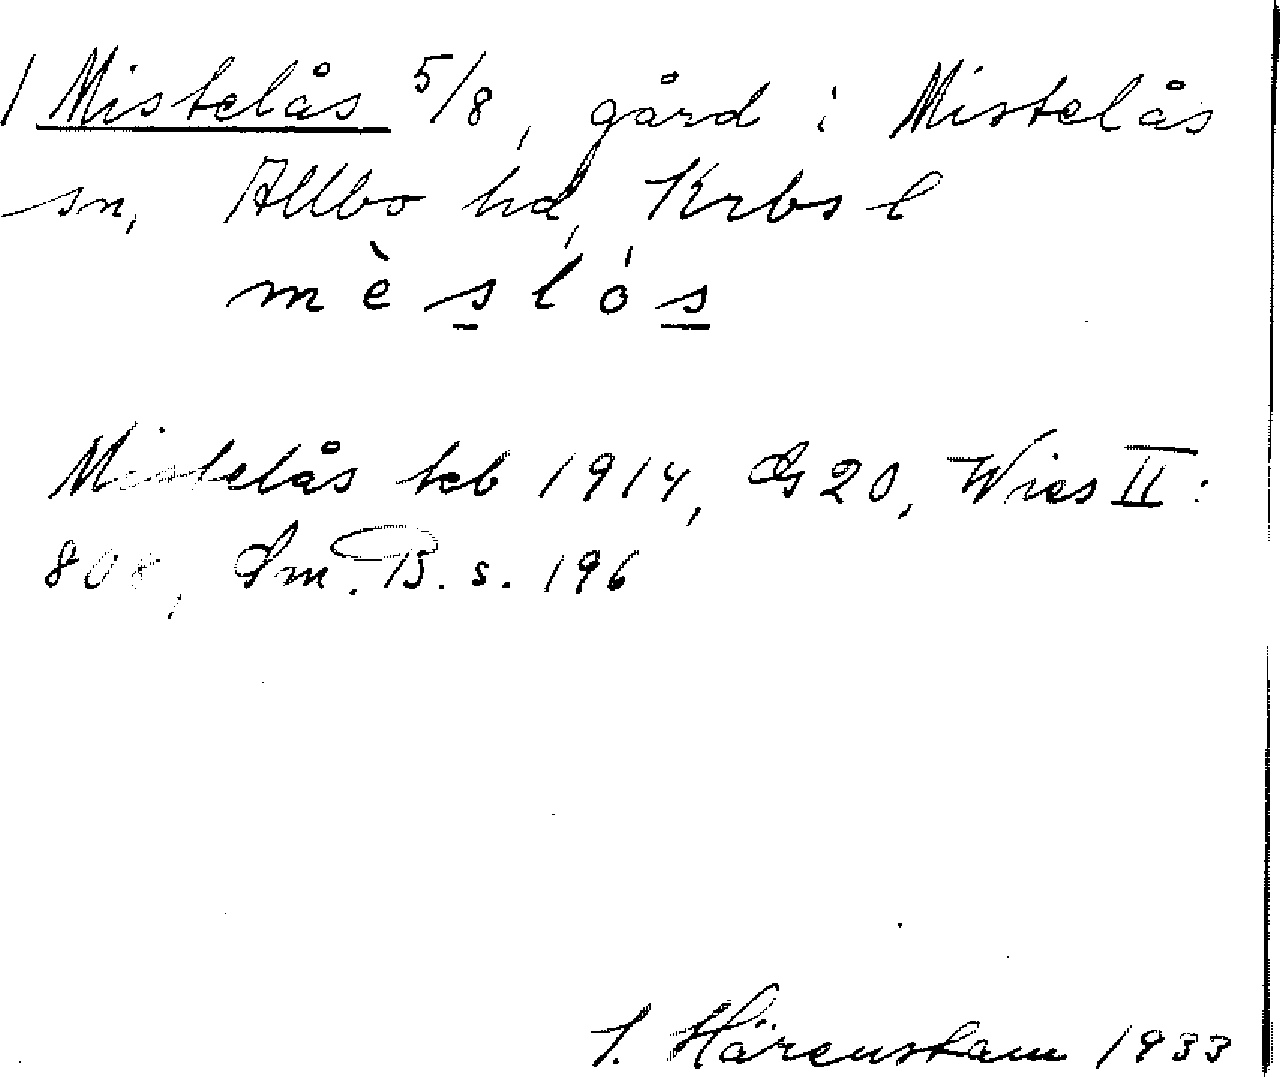 1 Mistelås 5/8, gård i Mistelås
sn, Allbo hd, Krbs l
m è s l ó s
Mistelås teb 1914, G 20, Wies II:
808, Sm. B. s. 196
Härenstam 1933